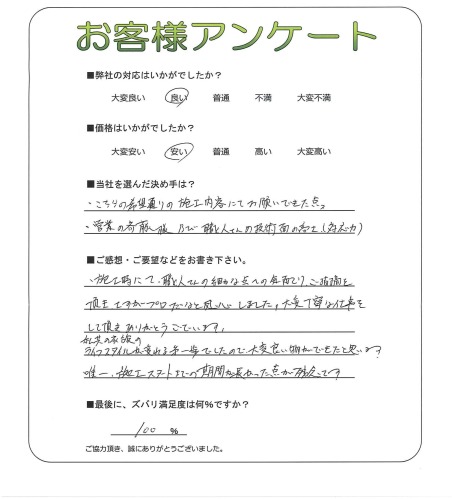 お客様アンケート
■弊社の対応はいかがでしたか？
大変良い 良い 普通 不満 大変不満
■価格はいかがでしたか？
大変安い 安い 普通 高い 大変高い
■当社を選んだ決め手は？
・こちらの希望通りの施工内容にてお願いできた点。
・営業の 様 及び 職人さんの技術面の
■ご感想・ご要望などをお書き下さい。
・施工時にて、職人さんの細かな点への ご指摘を
頂き さすがプロだなと感心しました。大変丁寧な仕事を
して頂きありがとうございます。
私共の家族の
ライフスタイルが変わる第一歩でしたので大変良い物ができたと思います。
唯一、施工スタートまでの期間が長かった点が残念です
■最後に、ズバリ満足度は何%ですか？
100 %
ご協力頂き、誠にありがとうございました。